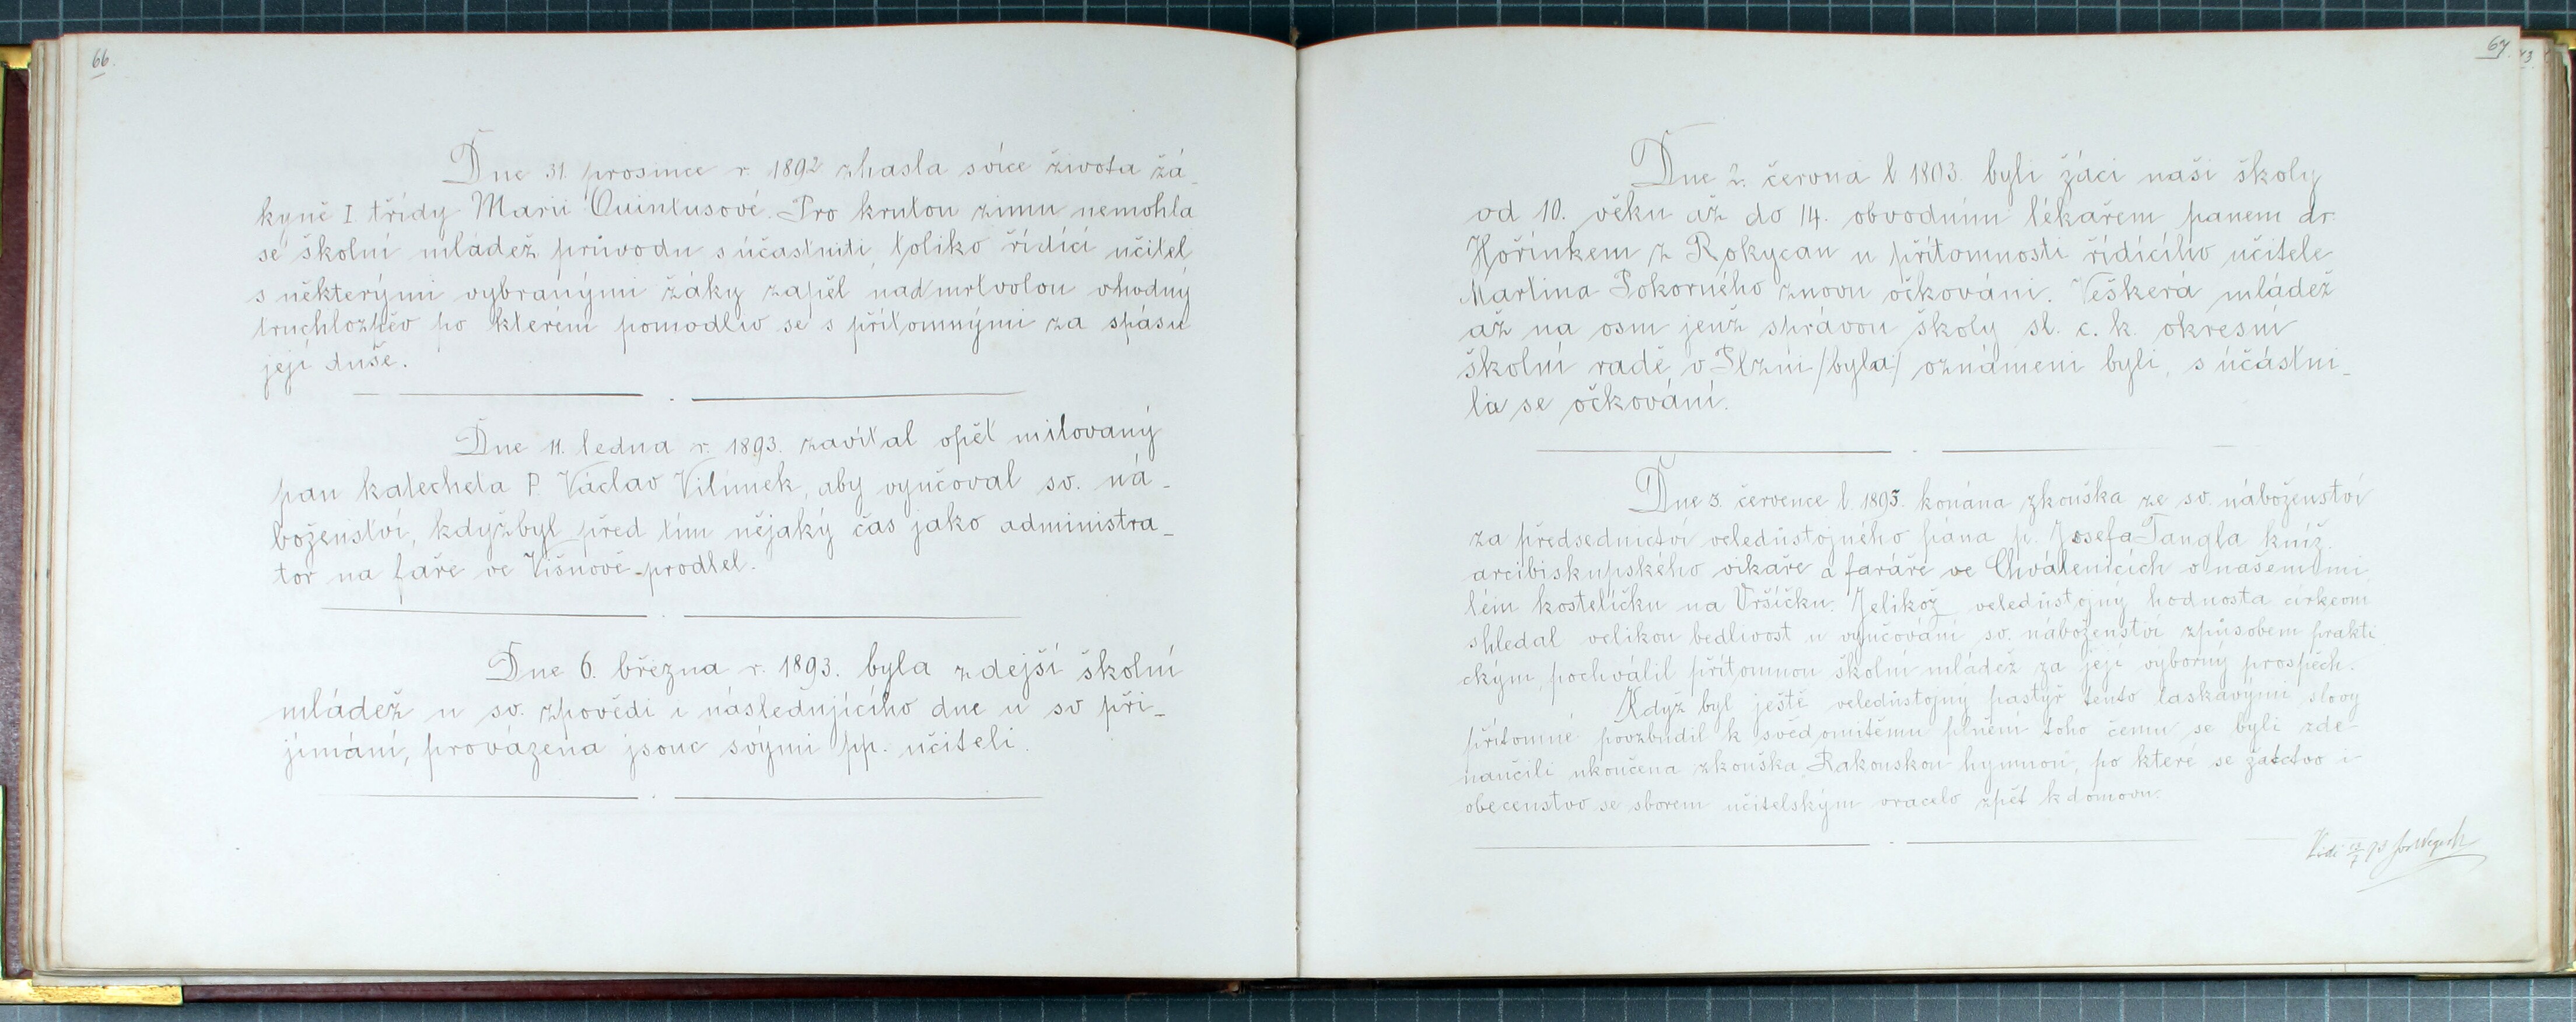 66.
Dne 31. prosince r. 1892 zhasla svíce života žá-
kyně I třídy Marii Quintusové. Pro krutou zimu nemohla
se školní mládež průvodu súčastniti, toliko řídící učitel
s některými vybranými žáky zapěl nad mrtvolou vhodný
truchlozpěv po kterém pomodliv se s přítomnými za spásu
její duše.
Dne 11. ledna r. 1893. zavítal opět milovaný
pan katecheta P. Václav Vilímek, aby vyučoval sv. ná-
boženství, když byl před tím nějaký čas jako administra-
tor na faře ve Višňově prodlel.
Dne 6. března r. 1893. byla zdejší školní
mládež u sv. zpovědi i následujícího dne u sv při-
jímání, provázena jsouc svými pp. učiteli.
67.
Dne 2. června l 1893. byli žáci naši školy
od 10. věku až do 14. obvodním lékařem panem dr.
Hořínkem z Rokycan u přítomnosti řídícího učitele
Martina Pokorného znovu očkováni. Veškerá mládež
až na osm jenž správou školy sl. c. k. okresní
školní radě v Plzni /byla/ oznámeni byli, súčástni-
la se očkování.
Dne 3. července l. 1893. konána zkouška ze sv. náboženství
za předsednictví veledůstojného pána p. Josefa Tangla kníž.
arcibiskupského vikáře a faráře ve Chválenicích v našem mi
lém kostelíčku na Vršíčku. Jelikož veledůstojný hodnosta církevní
shledal velikou bedlivost u vyučování sv. náboženství způsobem prakti
ckým, pochválil přítomnou školní mládež za její výborný prospěch.
Když byl ještě veledůstojný pastýř tento laskavými slovy
přítomné povzbudil k svědomitému plnění toho čemu se byli zde
naučili ukončena zkouška Rakouskou hymnou, po které se žactvo i
obecenstvo se sborem učitelským vracelo zpět k domovu.
Vidi 93